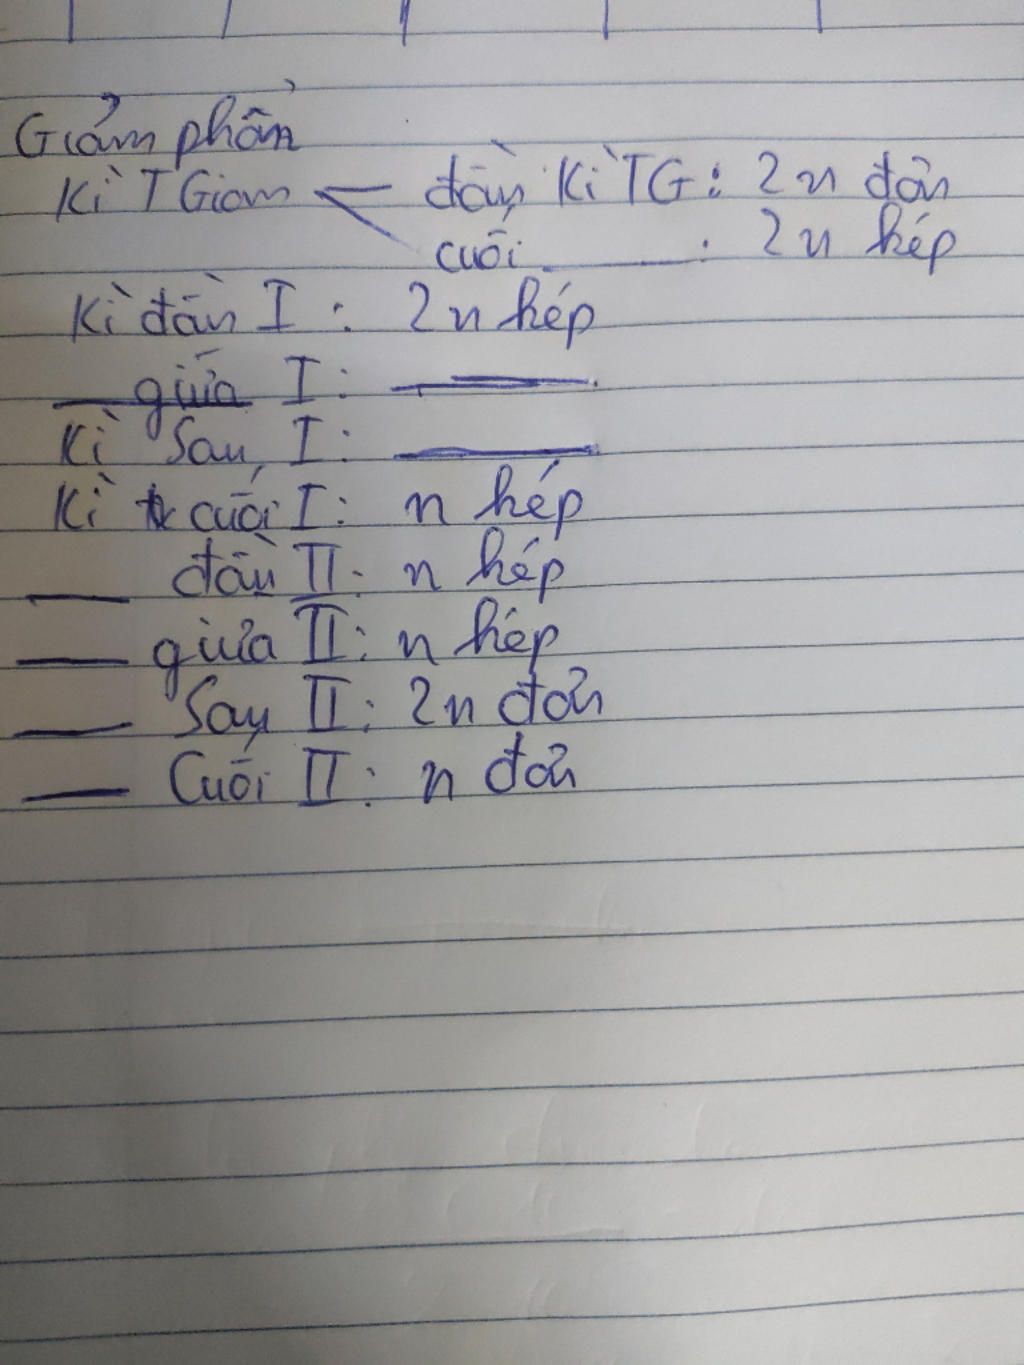 Giảm phân
Kì TGian đầu kì TG: 2n đơn
cuối : 2n kép
Kì đầu I : 2n kép
giữa I :
Kì Sau I :
Kì cuối I : n kép
đầu II : n kép
giữa II : n kép
Sau II : 2n đơn
Cuối II : n đơn